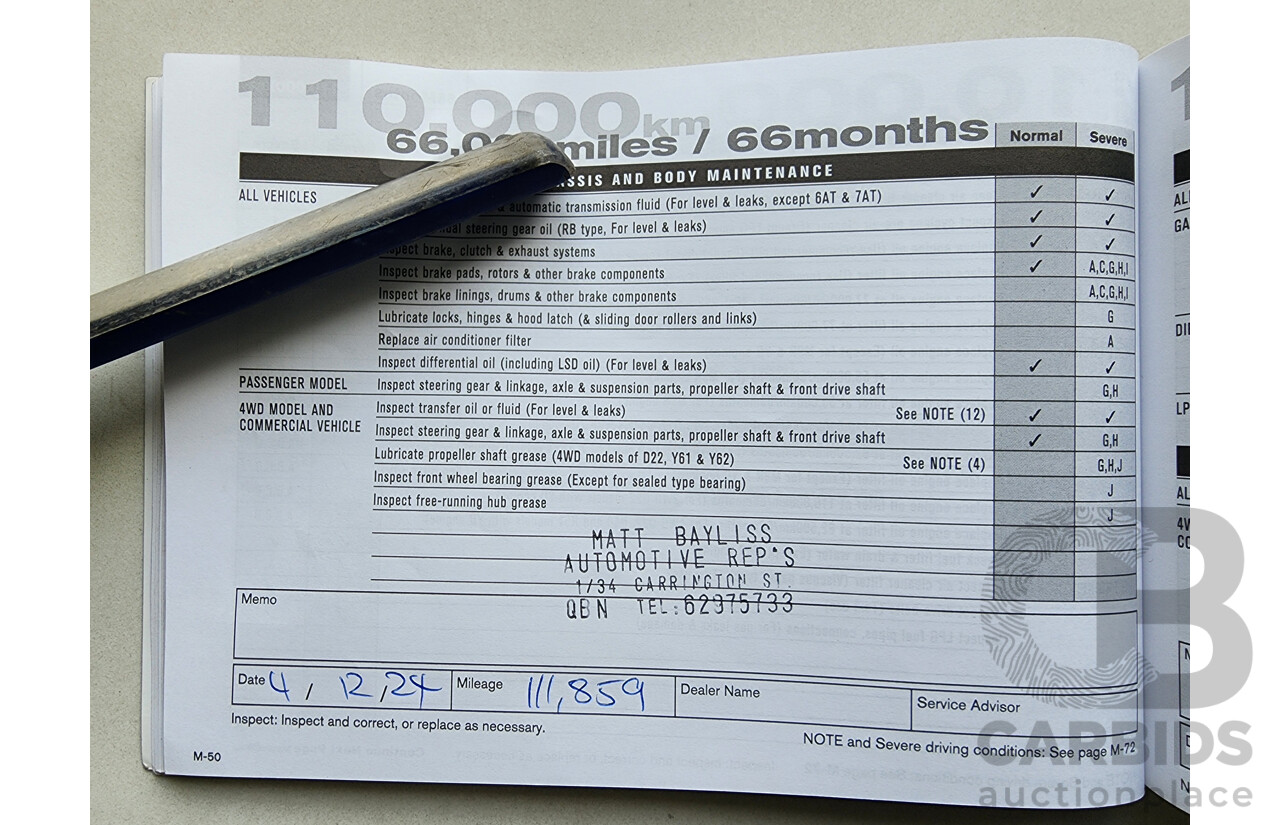 110,000km
66,0 miles / 66months
Normal Severe
ASSIS AND BODY MAINTENANCE
ALL VEHICLES
& automatic transmission fluid (For level & leaks, except 6AT & 7AT) ✓ ✓
steering gear oil (RB type, For level & leaks) ✓ ✓
Inspect brake, clutch & exhaust systems ✓ ✓
Inspect brake pads, rotors & other brake components ✓ A,C,G,H,I
Inspect brake linings, drums & other brake components A,C,G,H,I
Lubricate locks, hinges & hood latch (& sliding door rollers and links) G
Replace air conditioner filter A
Inspect differential oil (including LSD oil) (For level & leaks) ✓ ✓
PASSENGER MODEL Inspect steering gear & linkage, axle & suspension parts, propeller shaft & front drive shaft G,H
4WD MODEL AND
COMMERCIAL VEHICLE
Inspect transfer oil or fluid (For level & leaks) See NOTE (12) ✓ ✓
Inspect steering gear & linkage, axle & suspension parts, propeller shaft & front drive shaft ✓ G,H
Lubricate propeller shaft grease (4WD models of D22, Y61 & Y62) See NOTE (4) G,H,J
Inspect front wheel bearing grease (Except for sealed type bearing) J
Inspect free-running hub grease J
MATT BAYLISS
AUTOMOTIVE REP'S
1/34 CARRINGTON ST.
QBN TEL:62975733
Memo
Date 4 / 12 / 24 Mileage 111,859 Dealer Name Service Advisor
Inspect: Inspect and correct, or replace as necessary.
NOTE and Severe driving conditions: See page M-72
M-50
CB
CARBIDS
auctionplace